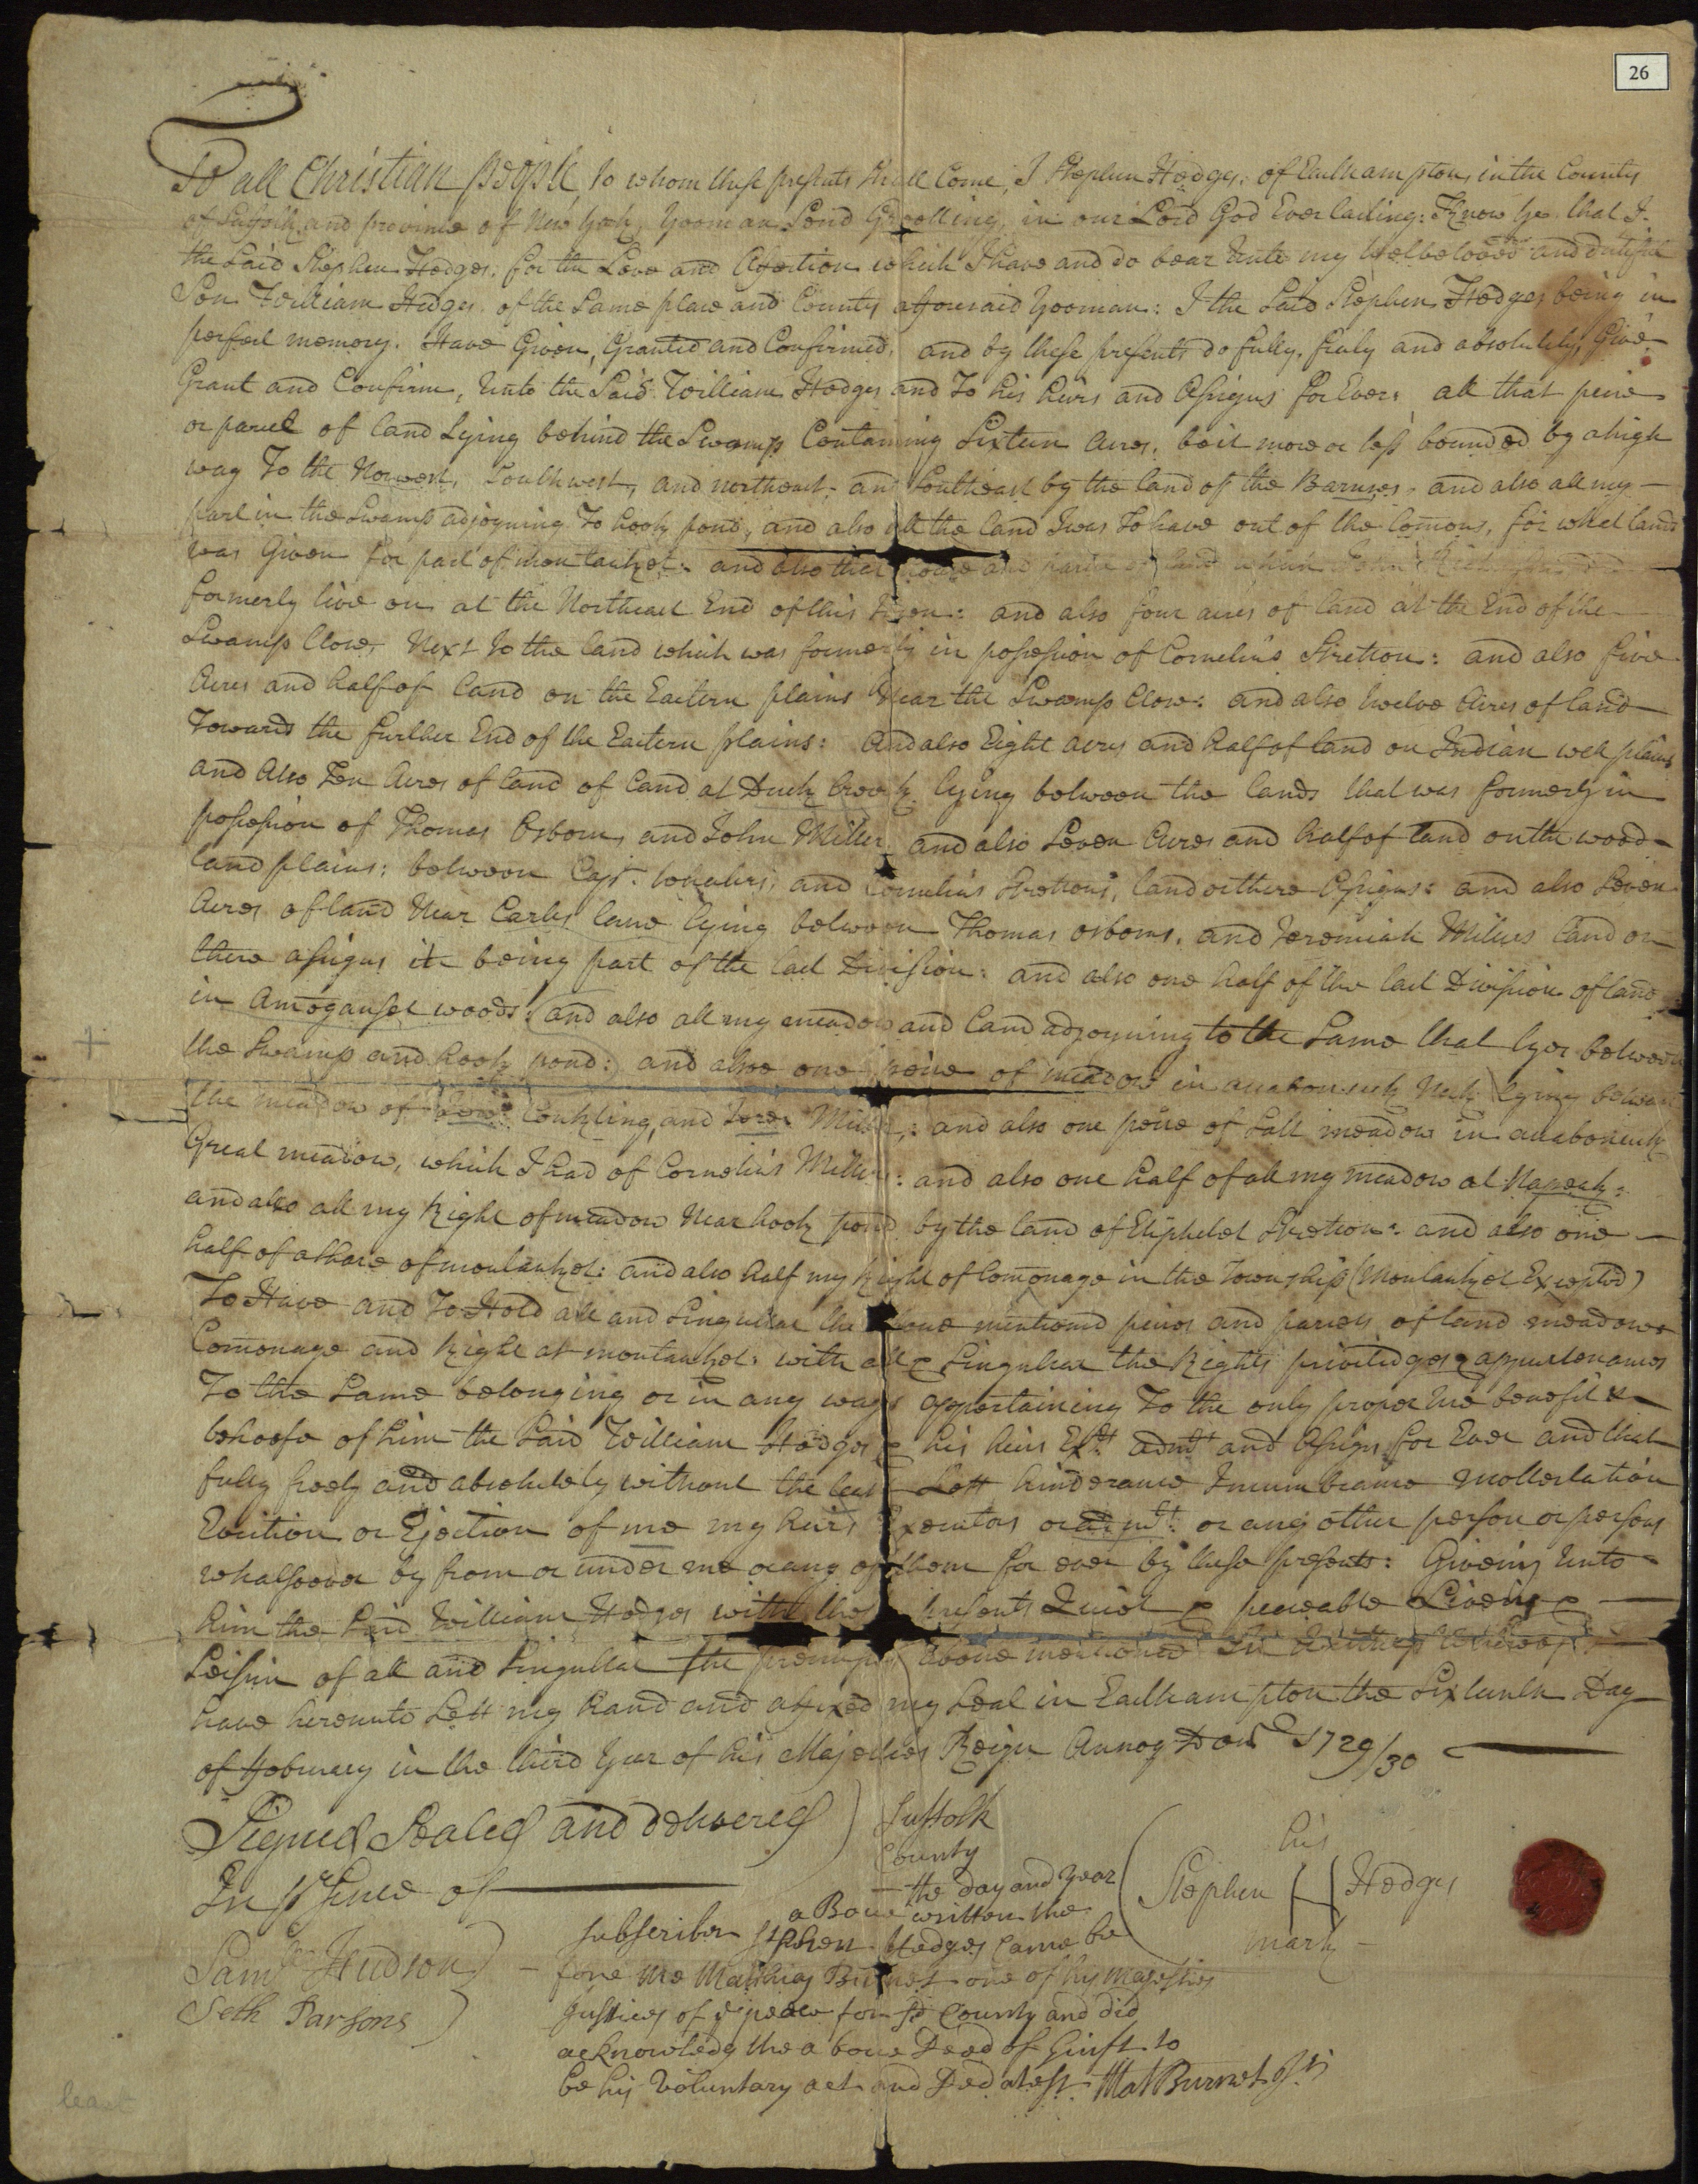 26
To all Christian people, to whom these presents shall Come, I Stephen Hedges. of Easthampton, in the County
of Suffolk and province of New York, Yooman Send Greetting in our Lord God Everlasting: Know ye that I.
the Said Stephen Hedges. for the Love and Afection which I have and do bear unto my welbeloved and dutifull
Son William Hedges. of the Same place and County aforesaid Yooman: I the Said Stephen Hedges being in
perfect memory. Have Given, Granted and Confirmed, and by these presents do fully, frely and absolutely, Give
Grant and Confirm, unto the Said William Hedges and To his heirs and Asigns for Ever: all that peice
or parcel of land Lying behind the Swamp Containing Sixteen Acres, be it more or less bounded by a high
way To the Norwest, Southwest, and northeast, and Southeast by the land of the Barnses, and also all my
part in the Swamp adjoyning To hook pond, and also all the land I was To have out of the Comons, for what land
was Given for part of montauket: and also that house and parcel of land which John
formerly live on at the Northeast End of this Town: and also four acres of land at the End of the
Swamp Close, Next to the land which was formerly in possession of Cornelius Stretton: and also five
Acres and half of land on the Eastern plains Near the Swamp Close: and also twelve Acres of land
Towards the further End of the Eastern plains: And also Eight acres and half of land on Indian well plains
and Also Ten Acres of land of land at Duck Creek lying between the lands that was formerly in
possession of Thomas Osborn, and John Miller and also Seven Acres and half of land on the wood-
land plains: between Capt. whealers, and Cornelius Strettons, land or there Asigns: and also Seven
Acres of land Near Carles lane lying between Thomas osborns, and Jeremiah Milers land or
there asigns it being part of the last Division: and also one half of the last Division of land
in Amoganset woods: and also all my meadow and land adjoyning to the Same that lyes between
the Swamp and hook pond: and also one peice of meadow in accabonuck Neck lying between
the meadow of Conkling, and Miller,: and also one peice of Salt meadow in accabonuck
Great meadow, which I had of Cornelius Miller: and also one half of all my meadow at Napeak:
and also all my Right of meadow Near hook pond by the land of Eliphelet Stretton: and also one
half of a share of montauket: and also half my Right of Comonage in the Township (Montauket Excepted)
To Have and To Hold all and Singullar the above mentioned peices and parcels of land meadows
Comonage and Right at montauket: with all & Singular the Rights priviledges & appurtenances
To the Same belonging or in any ways appertaining To the only proper use benefit &
behoofe of him the Said William Hedges & his heirs Exts. admts and Asigns for Ever and that
fully freely and absolutely without the least Lett hinderance Incumbrance mollestation
Evition or Ejection of me my heirs Executors or admts: or any other person or persons
whatsoever by from or under me or any of them for ever by these presents: Giveing unto
him the Said William Hedges with these presents Quiet & peaceable Liveing &
Seisin of all and Singullar the premises above mentioned In Witness Whereof I
have hereunto Sett my hand and afixed my Seal in Easthampton the Sixteenth Day
of February in the third Year of his Majesties Reign Annoq Dom 1729/30
Signed Sealed and delivered
In presence of
Saml Hudson
Seth Parsons
Suffolk
County
the day and year
a Bove written the
subscriber Stphen Hedges Came be
fore me Mathias Burnet one of his majesties
Justices of ye peace for sd County and did
acknowledg the a bove Deed of Guift to
be his Voluntary act and Ded atest. Mat Burnet Jsts
his
Stephen H Hedges
mark
least